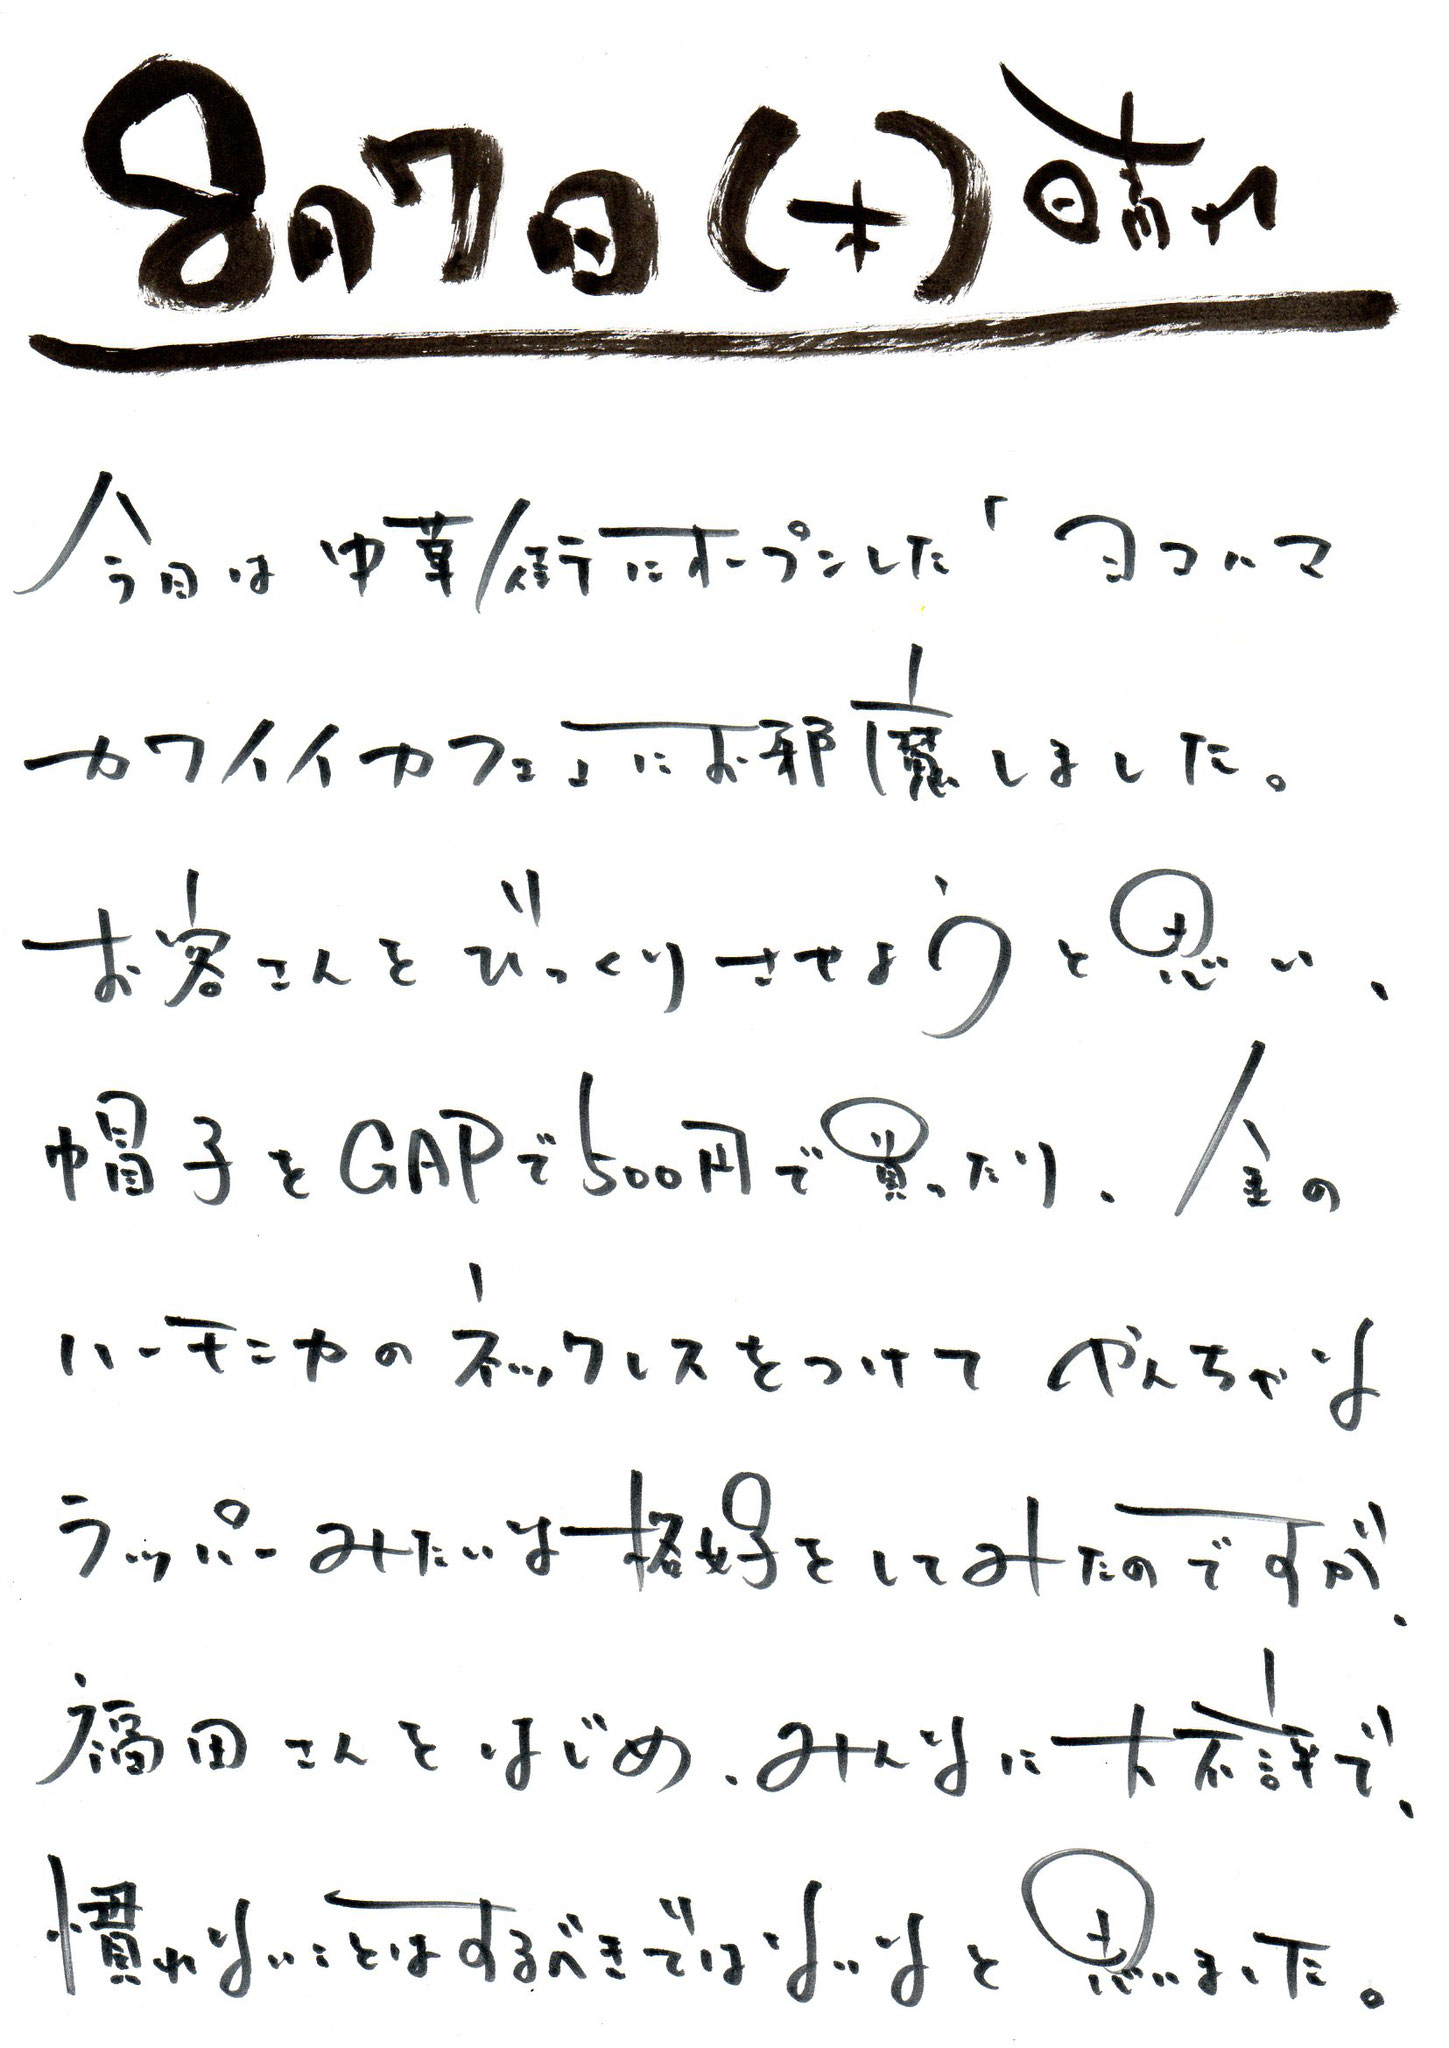 8月7日(木)晴れ
今日は中華街にオープンした「ヨコハマ
カワイイカフェ」にお邪魔しました。
お客さんをびっくりさせようと思い、
帽子をGAPで500円で買ったり、金の
ハーモニカのネックレスをつけてやんちゃな
ラッパーみたいな格好をしてみたのですが、
福田さんをはじめ、みんなに大不評で、
慣れないことはするべきではないなと思いました。